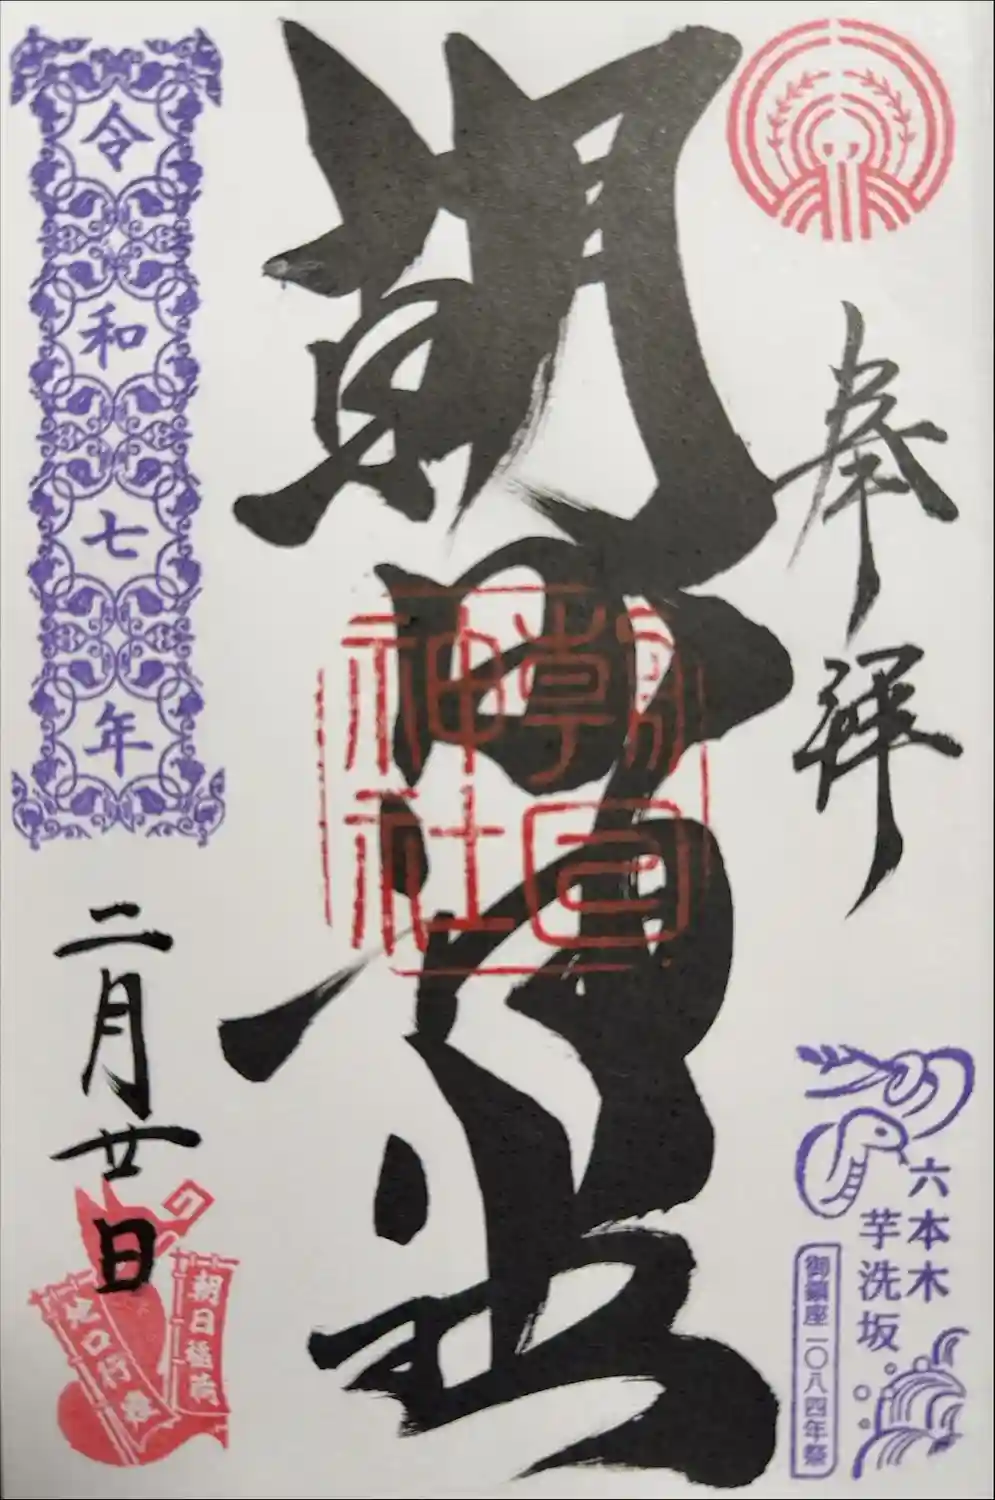 奉拝
朝日神社
朝日神社
令和七年
二月廿日
六本木
芋洗坂
御鎮座一〇八四年祭
朝日稲荷